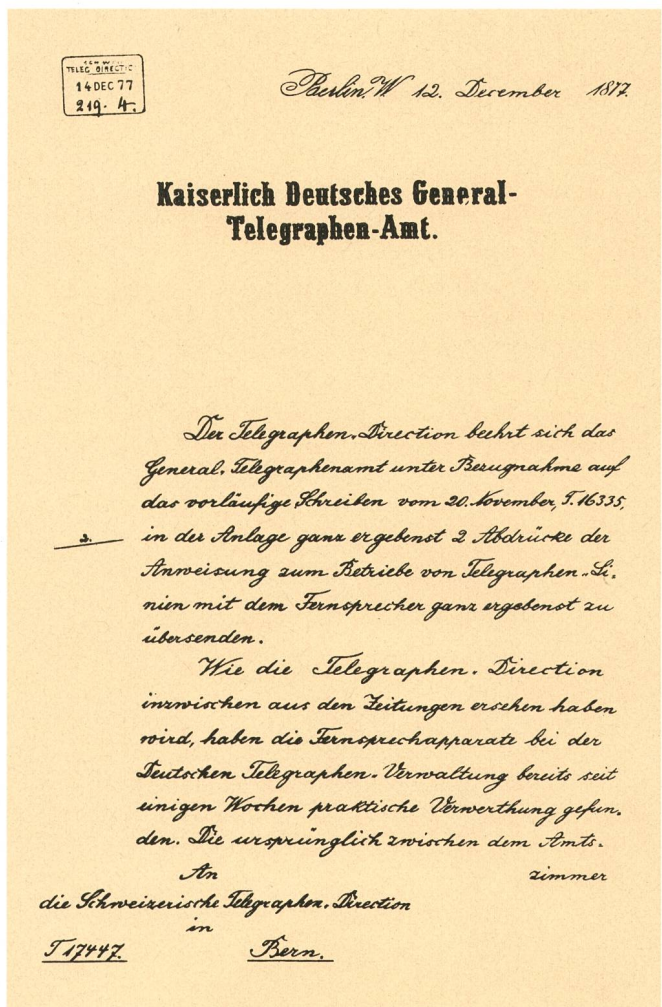 SCHWEIZ
TELEG. DIRECTIO
14 DEC 77
219. 4.
Berlin, W 12. December 1877.
Kaiserlich Deutsches General-
Telegraphen-Amt.
Der Telegraphen-Direction beehrt sich das
General-Telegraphenamt unter Bezugnahme auf
das vorläufige Schreiben vom 20. November, T. 16335,
2.
in der Anlage ganz ergebenst 2 Abdrücke der
Anweisung zum Betriebe von Telegraphen-Li-
nien mit dem Fernsprecher ganz ergebenst zu
übersenden.
Wie die Telegraphen-Direction
inzwischen aus den Zeitungen ersehen haben
wird, haben die Fernsprechapparate bei der
Deutschen Telegraphen-Verwaltung bereits seit
einigen Wochen praktische Verwerthung gefun-
den. Die ursprünglich zwischen dem Amts-
zimmer
An
die Schweizerische Telegraphen-Direction
in
Bern.
T 17447.